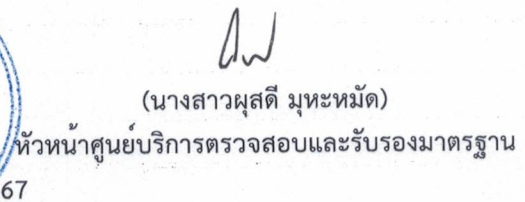 (นางสาวผุสดี มุหะหมัด)
หัวหน้าศูนย์บริการตรวจสอบและรับรองมาตรฐาน
67